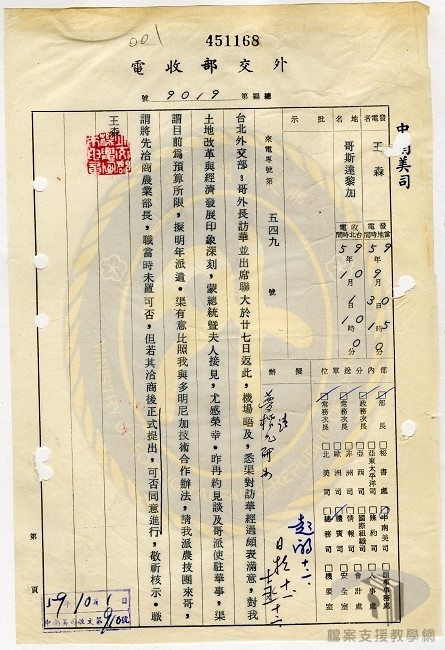 001
451168
外交部收電
總編第 9019 號
中南美司
發電者 王森
地名 哥斯達黎加
批示
發電當地時間 59年9月30日15時0分
收電台北時間 59年10月1日6時10分
來電專號第 五四九 號
部長
政務次長
常務次長
常務次長
秘書處
亞東太平洋司
亞西司
非洲司
歐洲司
北美司
中南美司
條約司
國際組織司
情報司
禮賓司
總務司
人事處
會計處
安全室
機要室
擬辦
台北外交部：哥外長訪華並出席聯大於廿七日返此，機場晤及，悉渠對訪華經過頗表滿意，對我
土地改革與經濟發展印象深刻，蒙總統暨夫人接見，尤感榮幸。昨再約見談及哥派使駐華事，渠
謂目前為預算所限，擬明年派遣。渠有意比照我與多明尼加技術合作辦法，請我派農技團來哥，
謂將先洽商農業部長，職當時未置可否，但若其洽商後正式提出，可否同意進行，敬祈核示。職
王森
第 頁
59年10月1日
中南美司收文第910號
檔案支援教學網